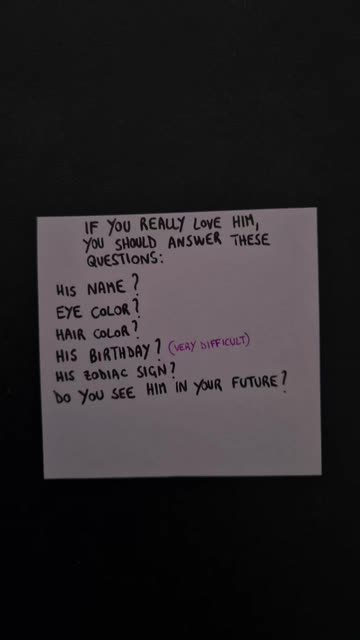 IF YOU REALLY LOVE HIM,
YOU SHOULD ANSWER THESE
QUESTIONS:
HIS NAME?
EYE COLOR?
HAIR COLOR?
HIS BIRTHDAY? (VERY DIFFICULT)
HIS ZODIAC SIGN?
DO YOU SEE HIM IN YOUR FUTURE?